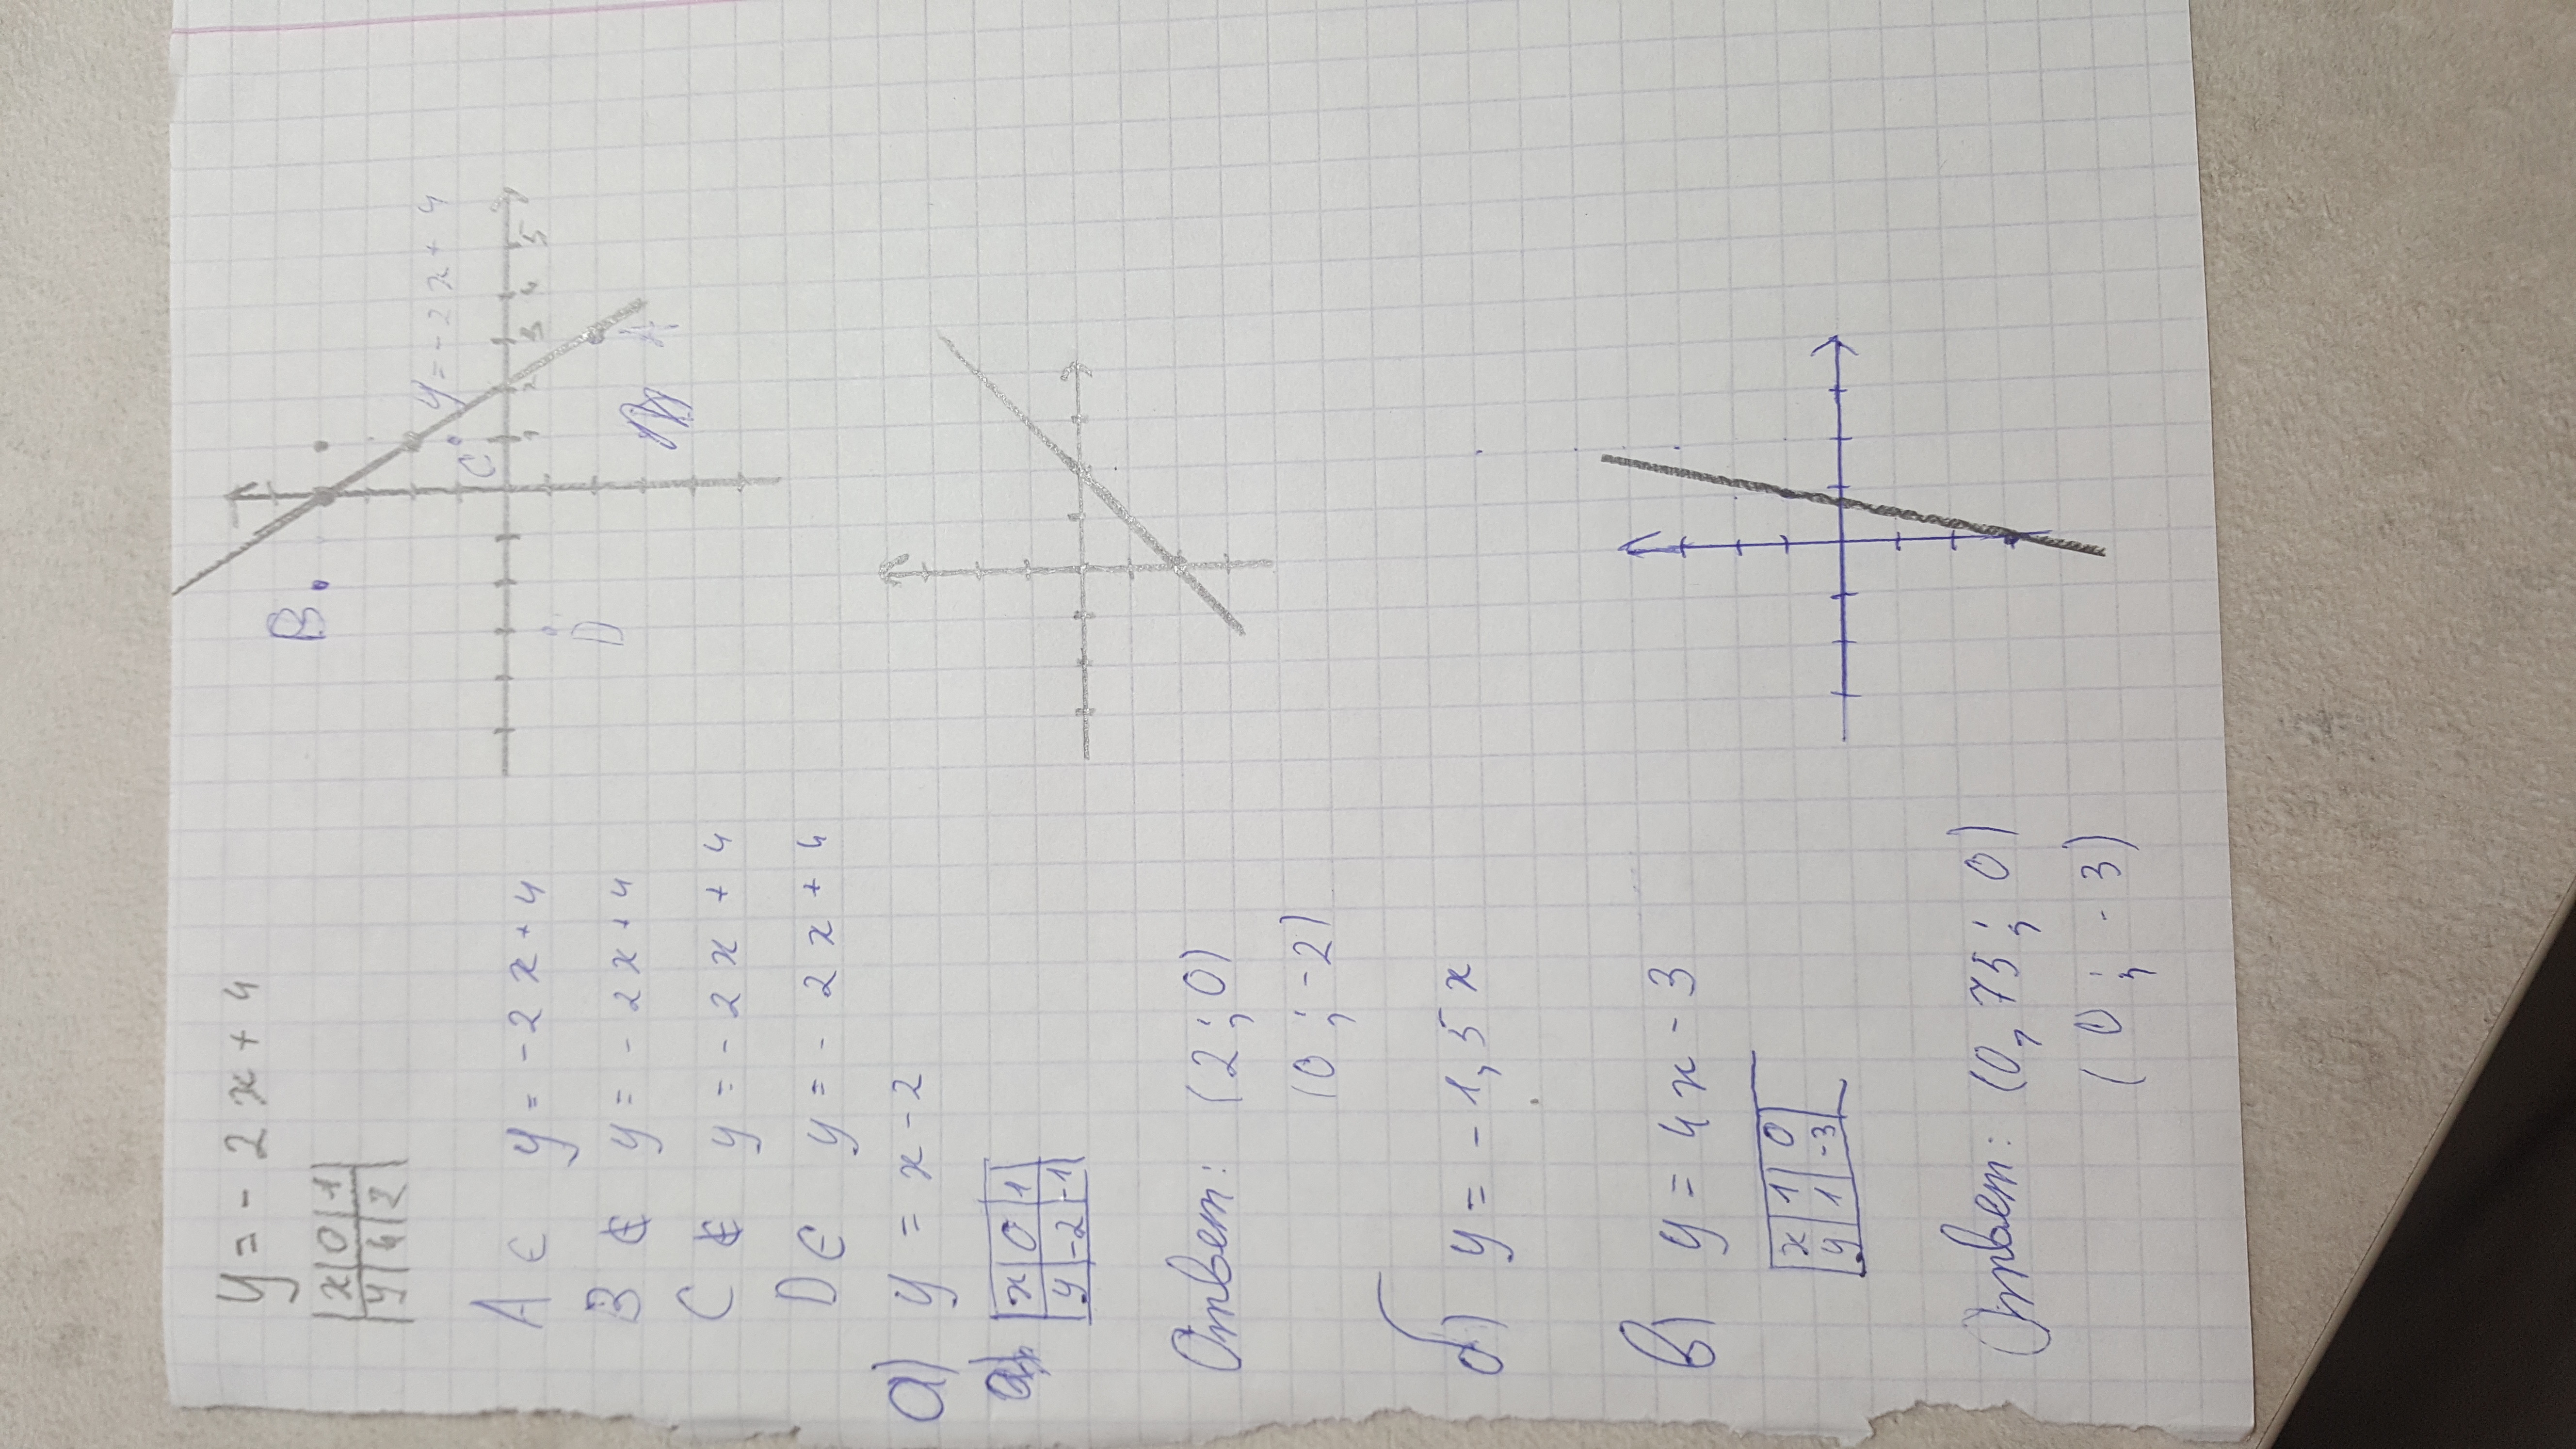 y = -2x + 4
x 0 1
y 4 2
B
C
D
A
y = -2x + 4
1 2 3 4 5
A ∈ y = -2x + 4
B ∉ y = -2x + 4
C ∉ y = -2x + 4
D ∈ y = -2x + 4
а) y = x - 2
x 0 1
y -2 -1
Ответ: (2; 0)
(0; -2)
б) y = -1,5x
в) y = 4x - 3
x 1 0
y 1 -3
Ответ: (0,75; 0)
(0; -3)